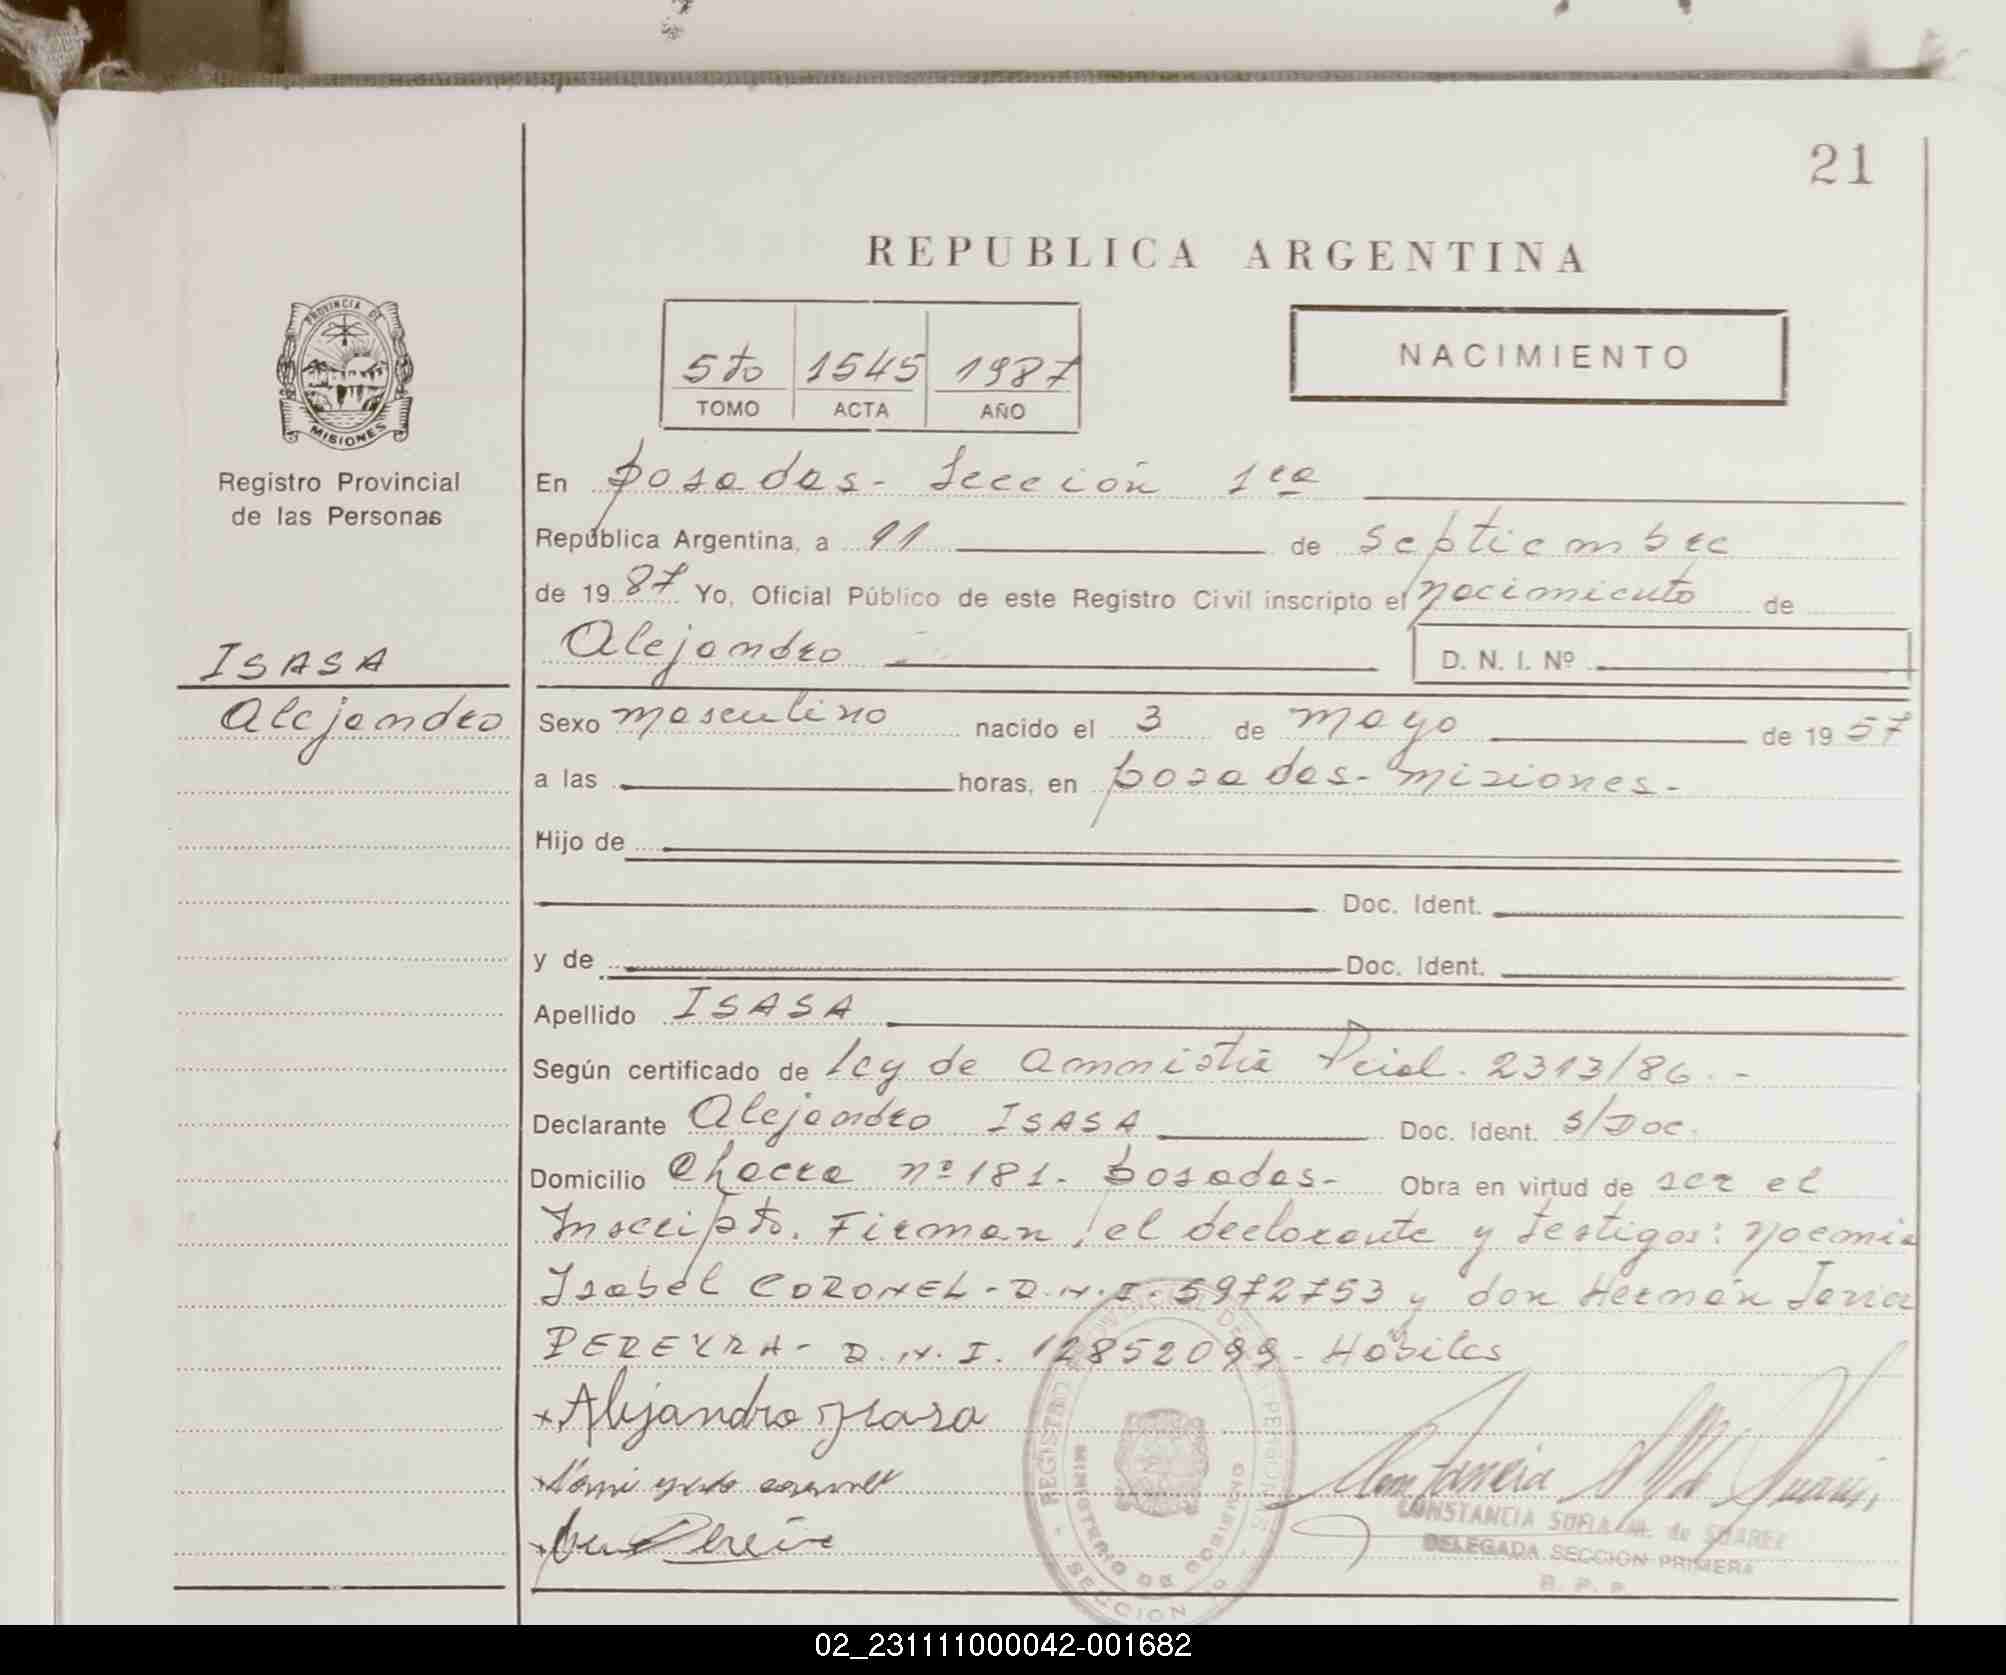 21
REPUBLICA ARGENTINA
PROVINCIA DE
MISIONES
Registro Provincial
de las Personas
5to 1545 1987
TOMO ACTA AÑO
NACIMIENTO
En Posadas- Sección 1ra
República Argentina, a 11 de Septiembre
de 1987 Yo, Oficial Público de este Registro Civil inscripto el nacimiento de
Alejandro D. N. I. Nº
ISASA
Alejandro
Sexo masculino nacido el 3 de mayo de 1957
a las horas, en Posadas- Misiones.
Hijo de
Doc. Ident.
y de Doc. Ident.
Apellido ISASA
Según certificado de Ley de Amnistia Pcial. 2313/86.-
Declarante Alejandro ISASA Doc. Ident. S/Doc.
Domicilio Chacra nº 181- Posadas- Obra en virtud de ser el
Inscripto. Firman, el declarante y testigos: Noemia
Isabel CORONEL- D.N.I. 5972753 y don Hernán Javier
PEREYRA- D.N.I. 12852099- Hábiles
x Alejandro Isasa
CONSTANCIA SOFIA M. de SUAREZ
DELEGADA SECCION PRIMERA
R. P. P.
MINISTERIO DE GOBIERNO
02_231111000042-001682